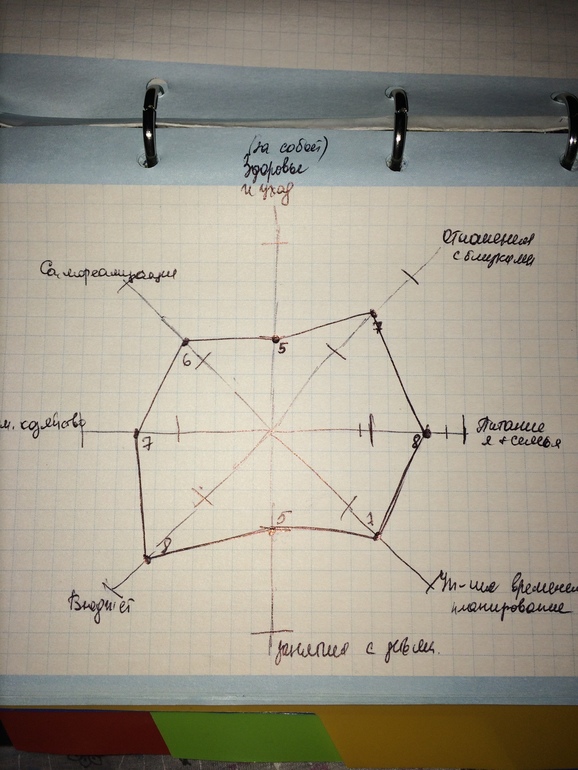 (за собой)
Здоровье
и уход
Отношения
с близкими
Самореализация
7
5
6
м. хозяйство
7
8
Питание
я + семья
5
7
8
Бюджет
Уп-ние временем
планирование
занятия с детьми.